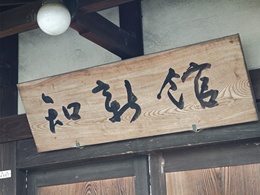 知新館